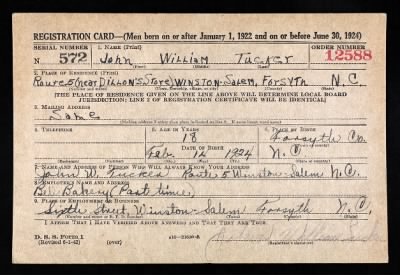 REGISTRATION CARD—(Men born on or after January 1, 1922 and on or before June 30, 1924)
SERIAL NUMBER 1. NAME (Print) ORDER NUMBER
N 572 John William Tucker 12588
2. PLACE OF RESIDENCE (Print)
Route 5 (near Dillon's Store) Winston-Salem, Forsyth N.C.
[THE PLACE OF RESIDENCE GIVEN ON THE LINE ABOVE WILL DETERMINE LOCAL BOARD
JURISDICTION; LINE 2 OF REGISTRATION CERTIFICATE WILL BE IDENTICAL]
3. MAILING ADDRESS
Same
4. TELEPHONE 5. AGE IN YEARS 6. PLACE OF BIRTH
18 Forsyth Co.
DATE OF BIRTH
Feb. 12 1924 N.C.
7. NAME AND ADDRESS OF PERSON WHO WILL ALWAYS KNOW YOUR ADDRESS
John W. Tucker Route 5 Winston-Salem N.C.
8. EMPLOYER'S NAME AND ADDRESS
Bakery (Part time)
9. PLACE OF EMPLOYMENT OR BUSINESS
Sixth Street, Winston-Salem Forsyth N.C.
I AFFIRM THAT I HAVE VERIFIED ABOVE ANSWERS AND THAT THEY ARE TRUE.
D. S. S. Form 1
(Revised 6-1-42) (over)